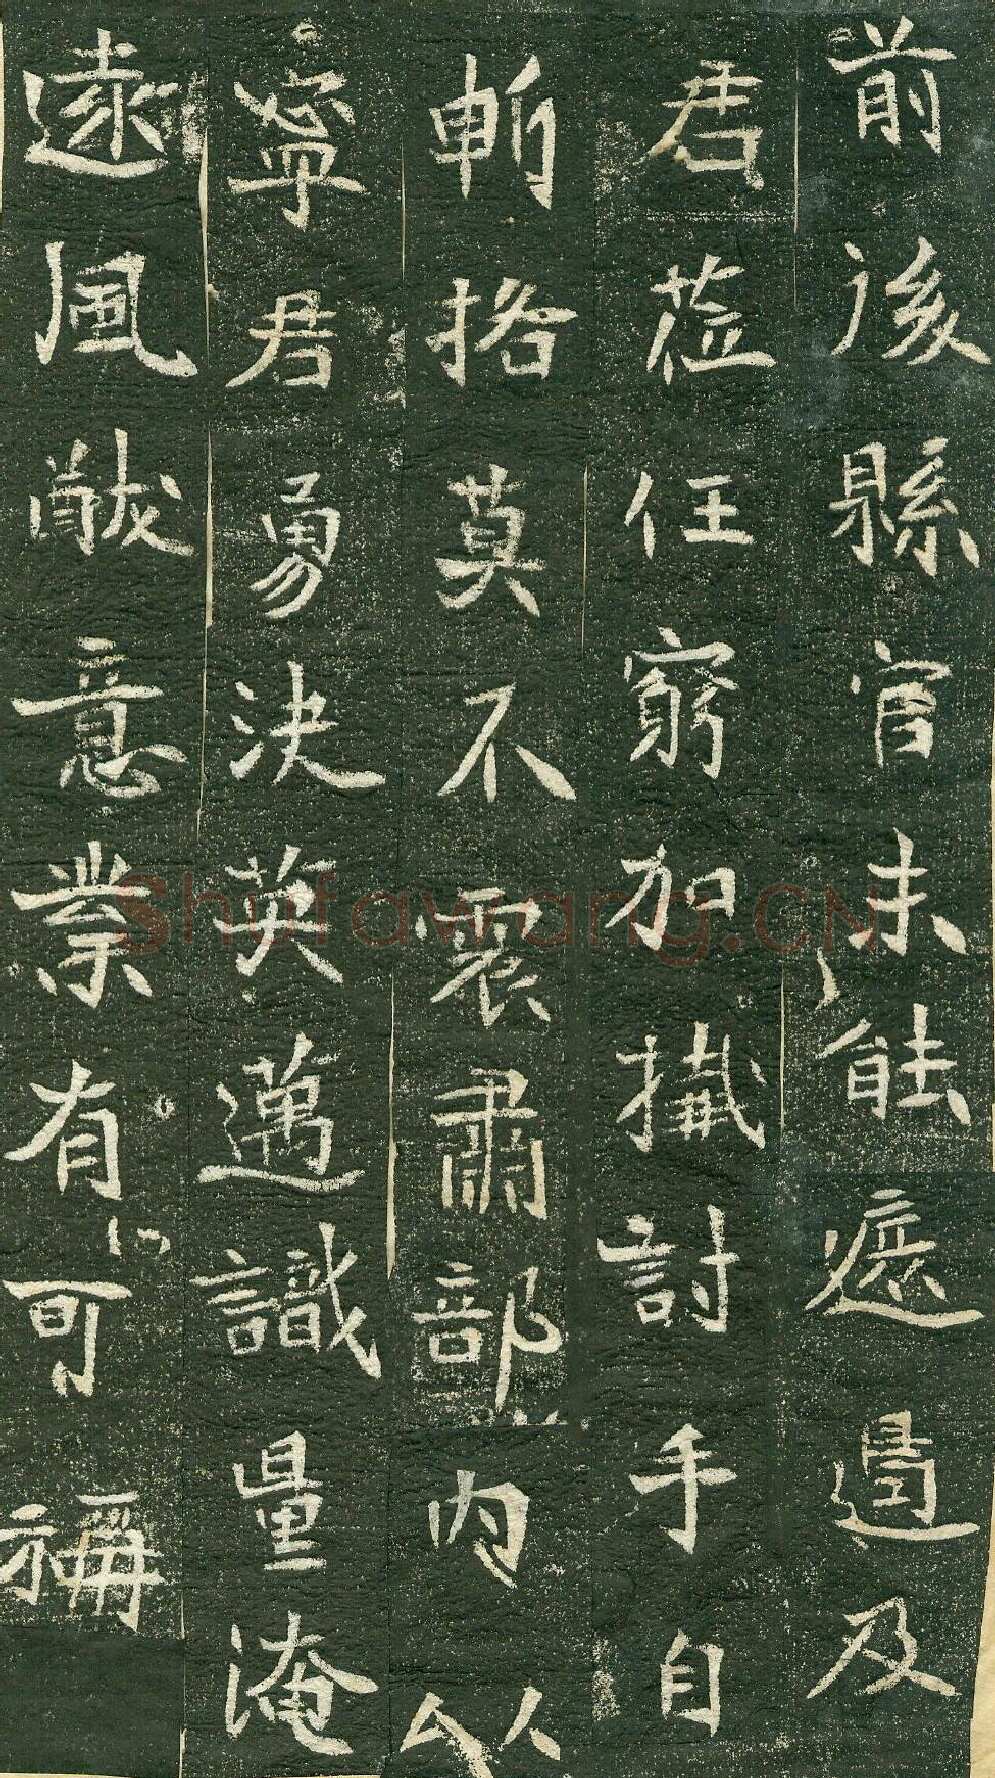 前後縣官未能遮遏及
君蒞任窮加擒討手自
斬挌莫不震肅部內以
寧君勇決英邁識量淹
遠風猷意業有可稱
Shufawang.CN